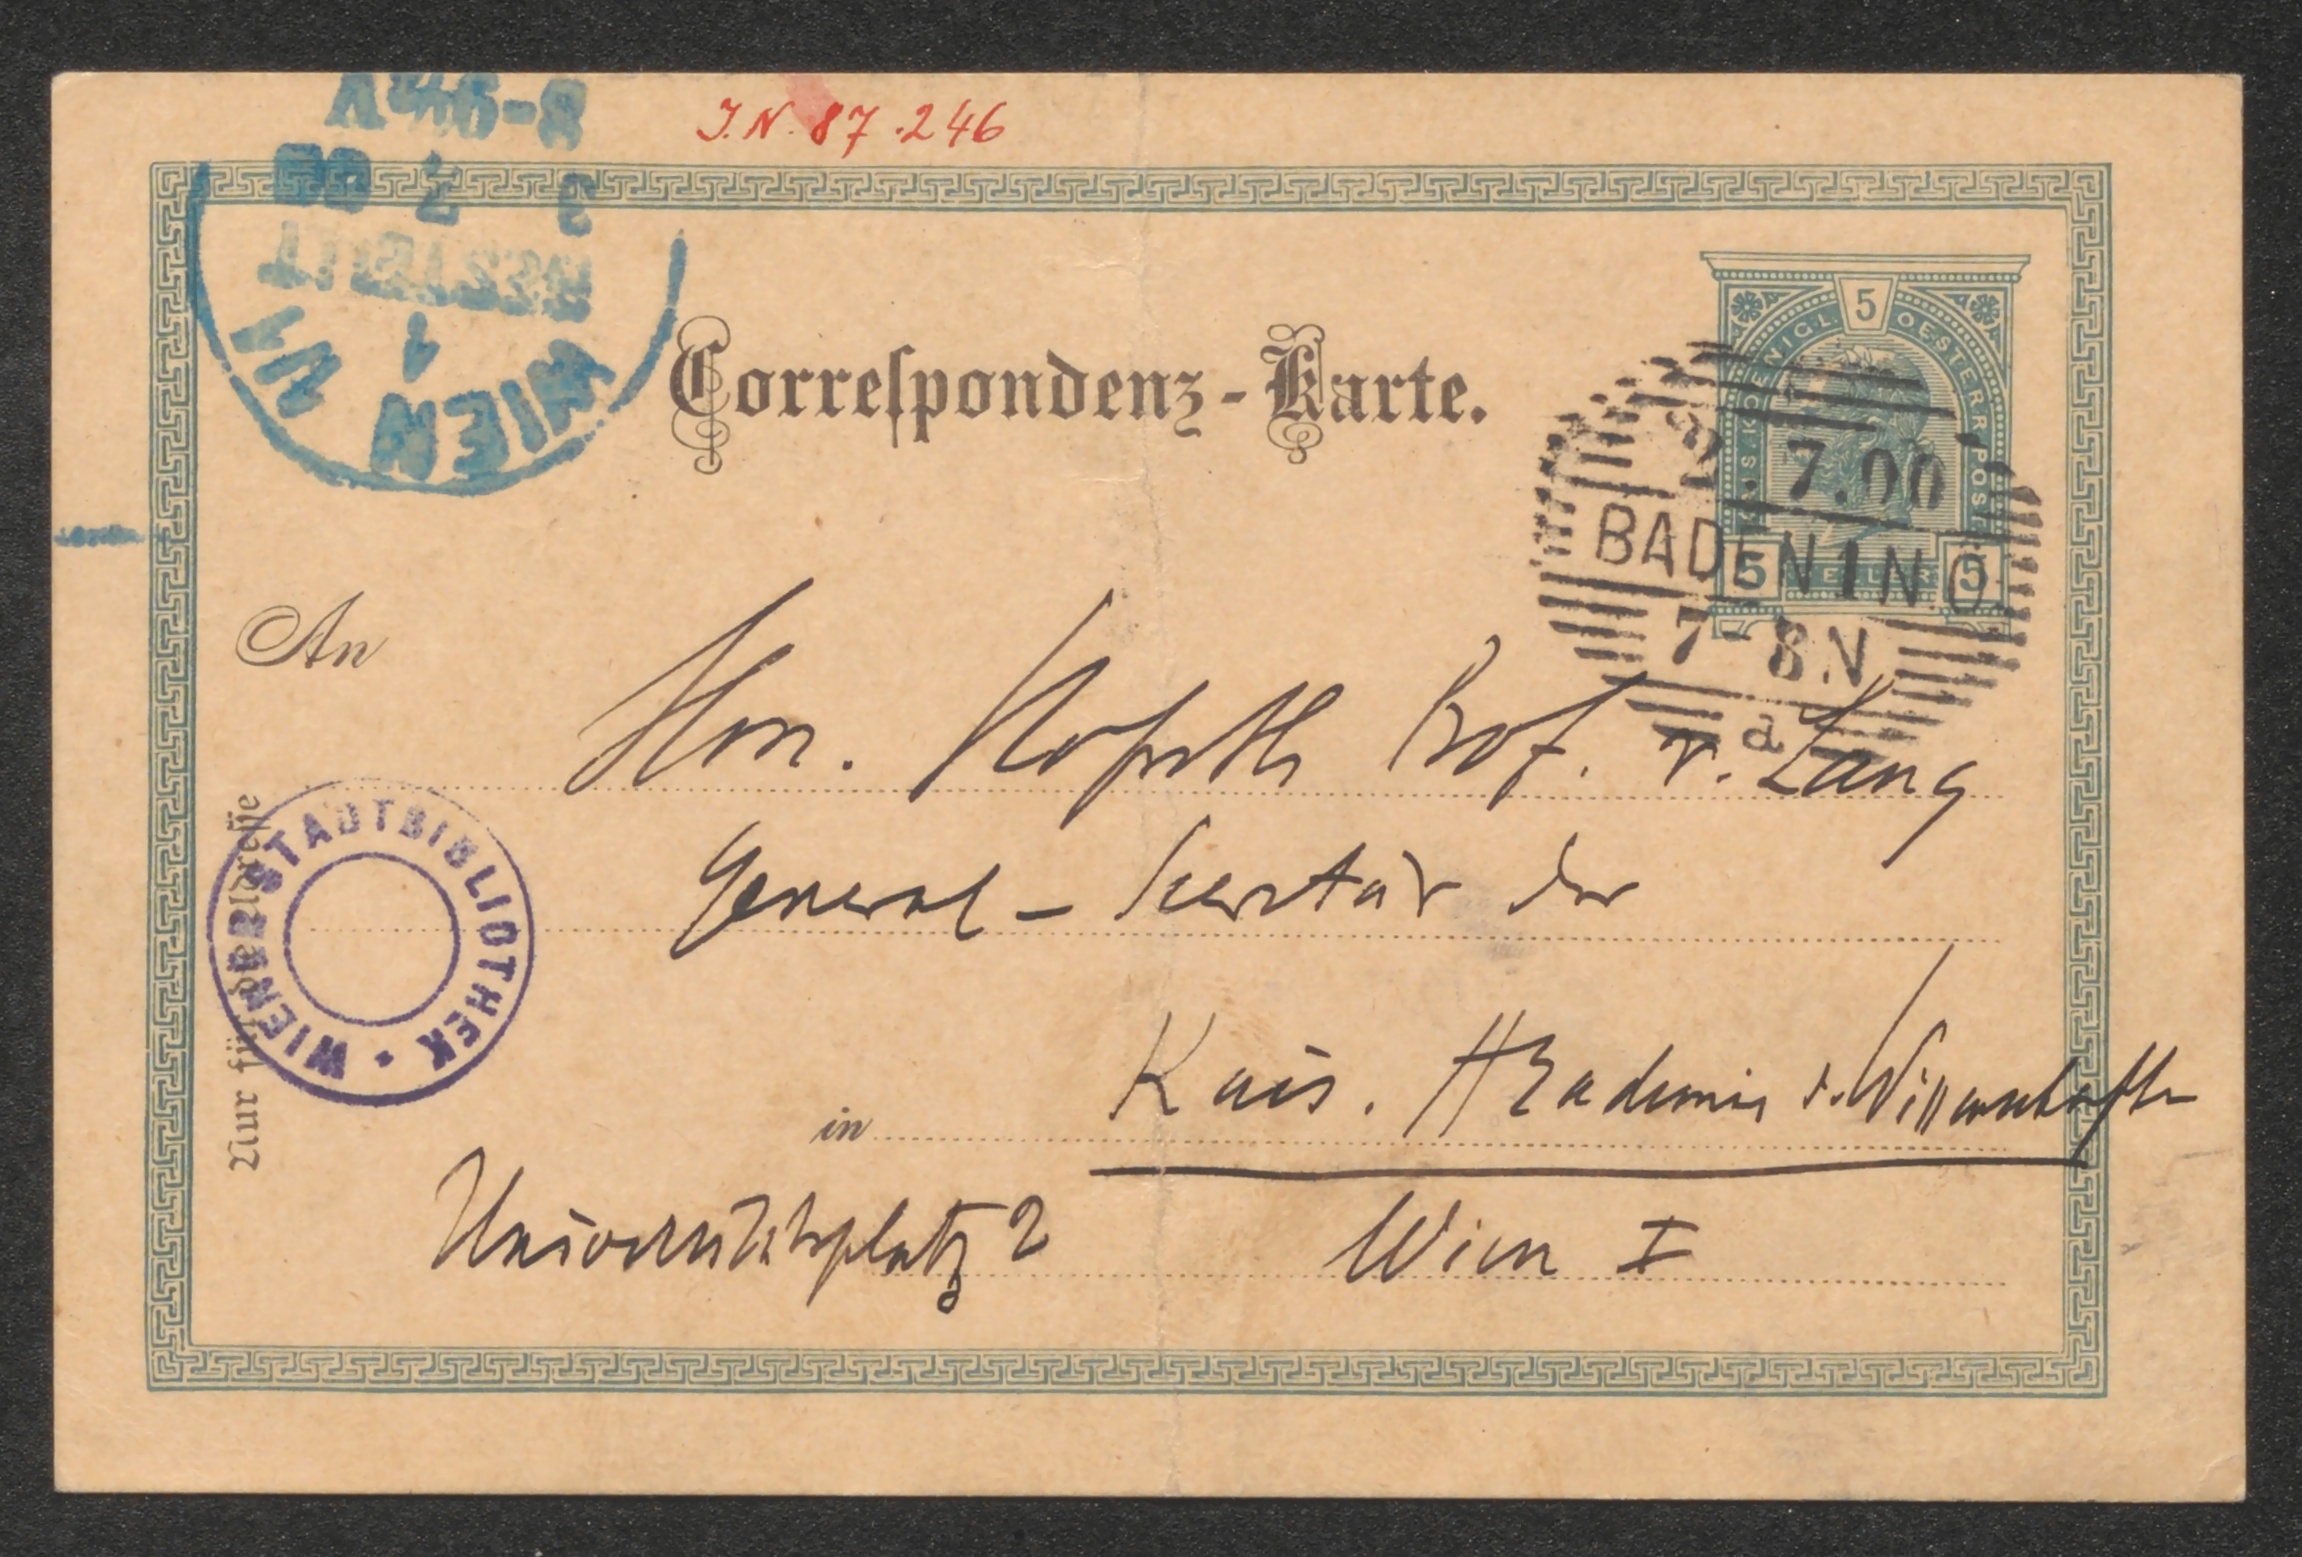 J.N. 87.246
8-9½V
3 7 00
BESTELLT
1
WIEN 1/1
Correſpondenz-Karte.
5
KOENIGL. OESTERR. POST
5 HELLER 5
2.7.00
BADEN I N.O
7-8.N
a
An
Herrn. Hofrath Prof. v. Lang
General-Secretär der
in Kais. Akademie d. Wissenschaften
Universitätsplatz 2 Wien I
Nur für die Adreſſe
WIENER STADTBIBLIOTHEK